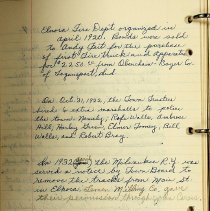 Elnora Fire Dept organized in
April 1920. Bonds were sold
to Andy for the purchase
of first fire truck and apparatus
for $2250.00 from Obenchain-Boyer Co.
of Logansport, Ind
On Oct. 31, 1923, the Town Trustees
hired 6 extra marshalls to police
the town Namely: Rafe Walls, Ambrose
Hill, Harley Greer, Elmer Toney, Bill
Walls, and Robert Bray
In 1932 the Milwaukee R.Y. was
served a notice by Town Board to
remove the tracks from Main St
in Elnora. Co. gave
their permission through